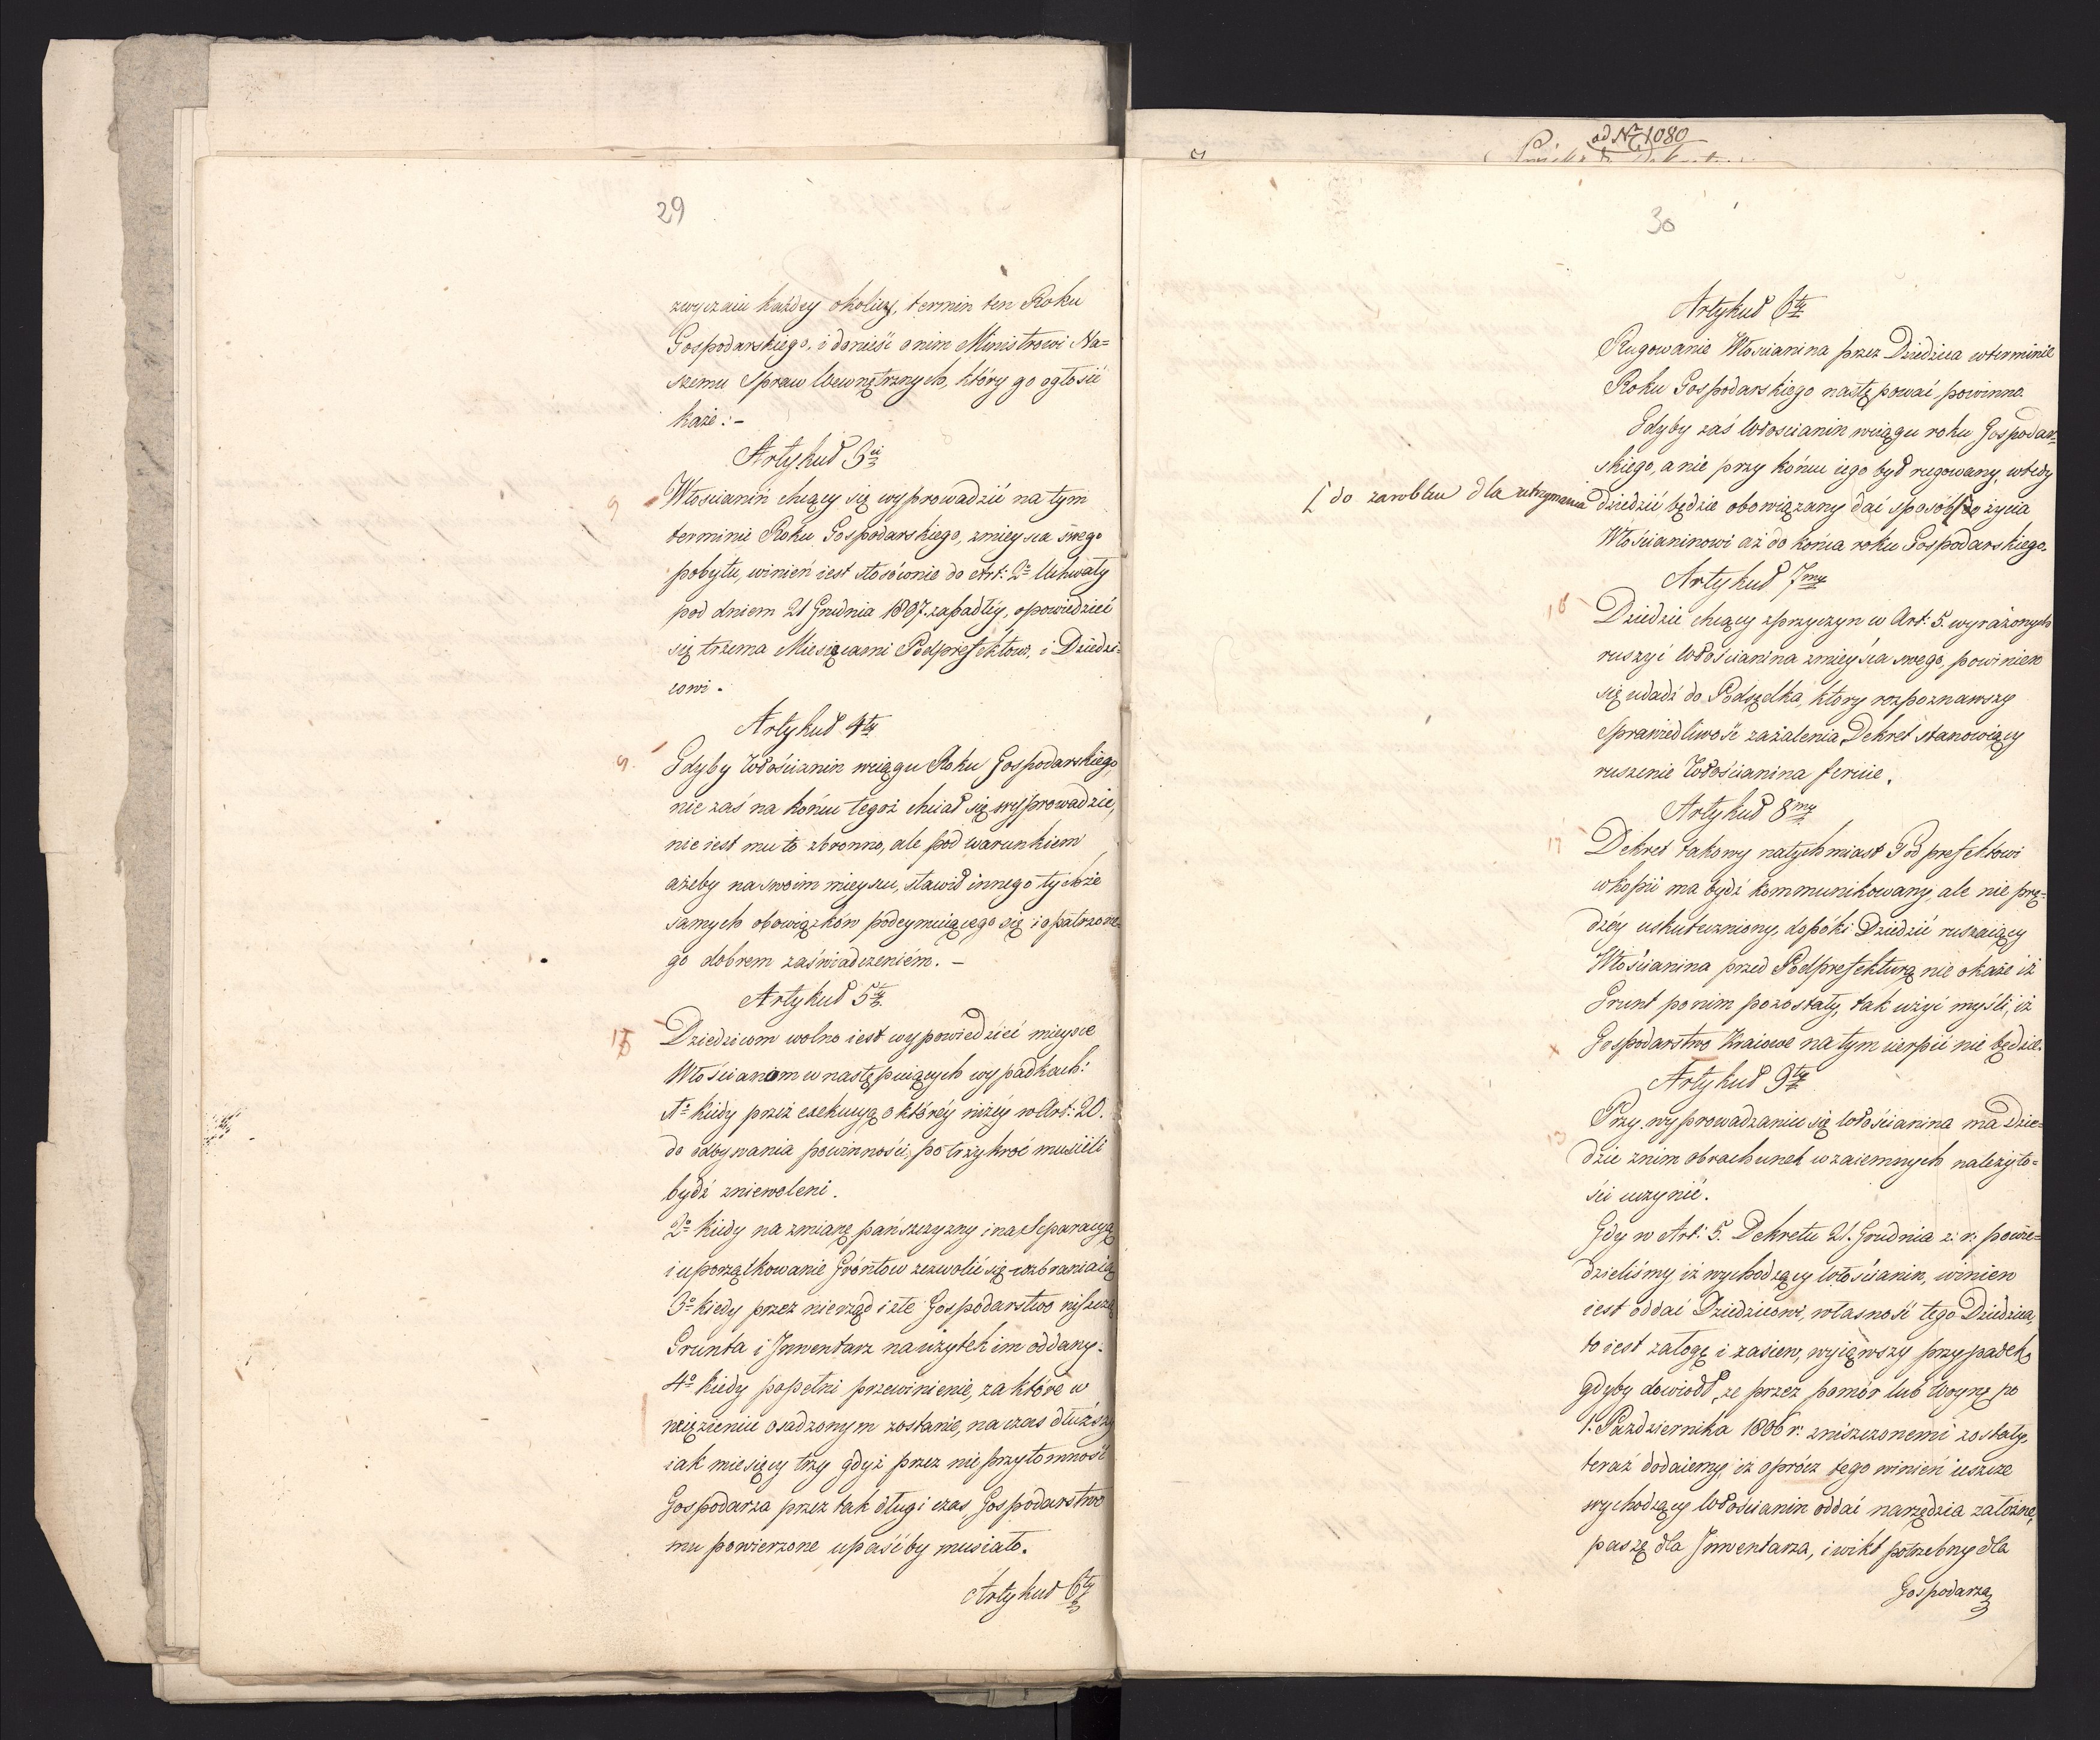 29
zwyczaiu każdey okolicy, termin ten Roku
Gospodarskiego, i donieść o nim Ministrowi Na=
szemu Spraw Wewnętrznych, który go ogłosić
każe:-
Artykuł 3ci
9 Włościanin chcący się wyprowadzić na tym
terminie Roku Gospodarskiego, zmieysca swego
pobytu, winien iest stosownie do Art: 2o Uchwały
pod dniem 21 Grudnia 1807. zapadłey, opowiedzieć
się trzema Miesiącami Podprefektowi, i Dziedzi=
cowi.
Artykuł 4ty
9. Gdyby Włościanin wciągu Roku Gospodarskiego
nie zaś na końcu tegoż chciał się wyprowadzić,
nie iest mu to zbronno, ale pod warunkiem
ażeby na swoim mieyscu, stawił innego tychże
samych obowiązków podeymuiącego się i opatrzone=
go dobrem zaświadczeniem.-
Artykuł 5ty
Dziedzicom wolno iest wypowiedzieć mieysce
Włościanom w następuiących wypadkach:
1o kiedy przez exekucyą o którey niżey w Art: 20.
do odbywania powinności, po trzykroć musieli
bydź zniewoleni.
2o kiedy na zmianę pańszczyzny i na Separacyą
i uporządkowanie Grontow zezwolić się wzbraniaią
3o kiedy przez nierząd i złe Gospodarstwo niszczą
Grunta i Inwentarz na użytek im oddany.
4o kiedy popełni przewinienie, za które w
więzieniu osadzonym zostanie, na czas dłuższy
iak miesięcy trzy gdyż przez nieprzytomność
Gospodarza przez tak długi czas, Gospodarstwo
mu powierzone upaśćby musiało.
Artykuł 6ty
ad No 1080
30
Artykuł 6ty
Rugowanie Włościanina przez Dziedzica w terminie
Roku Gospodarskiego następować powinno.
Gdyby zaś Włościanin wciągu roku Gospodar=
skiego, a nie przy końcu iego był rugowany, wtedy
[ do zarobku dla utrzymania
Dziedzic będzie obowiązany dać sposób [ życia
Włościaninowi aż do końca roku Gospodarskiego.
Artykuł 7my
Dziedzic chcący zprzyczyn w Art: 5. wyrażonych
ruszyć Włościanina zmieysca swego, powinien
się udać do Podsędka, który rozpoznawszy
sprawiedliwość zażalenia, Dekret stanowiący
ruszenie Włościanina feruie.
Artykuł 8my
Dekret takowy natychmiast Podprefektowi
wkopii ma bydź kommunikowany, ale nie prę=
dzey uskuteczniony, dopóki Dziedzic ruszaiący
Włościanina przed Podprefekturą nie okaże iż
Grunt po nim pozostały, tak użyć myśli, iż
Gospodarstwo Kraiowe na tym cierpieć nie będzie.
Artykuł 9ty
Przy wyprowadzaniu się Włościanina ma Dzie=
dzic znim obrachunek wzaiemnych należyto=
ści uczynić.
Gdy w Art: 5. Dekretu 21. Grudnia z: r: powie=
dzieliśmy, iż wychodzący Włościanin, winien
iest oddać Dziedzicowi, własność tego Dziedzica,
to iest załogę i zasiew, wyiąwszy przypadek,
gdyby dowiodł, że przez pomór lub Woynę po
1. Października 1806 r: zniszczonemi zostały,
teraz dodaiemy, iż oprócz tego winien ieszcze
wychodzący Włościanin oddać narzędzia załóżne,
paszę dla Inwentarza, i wikt potrzebny dla
Gospodarza